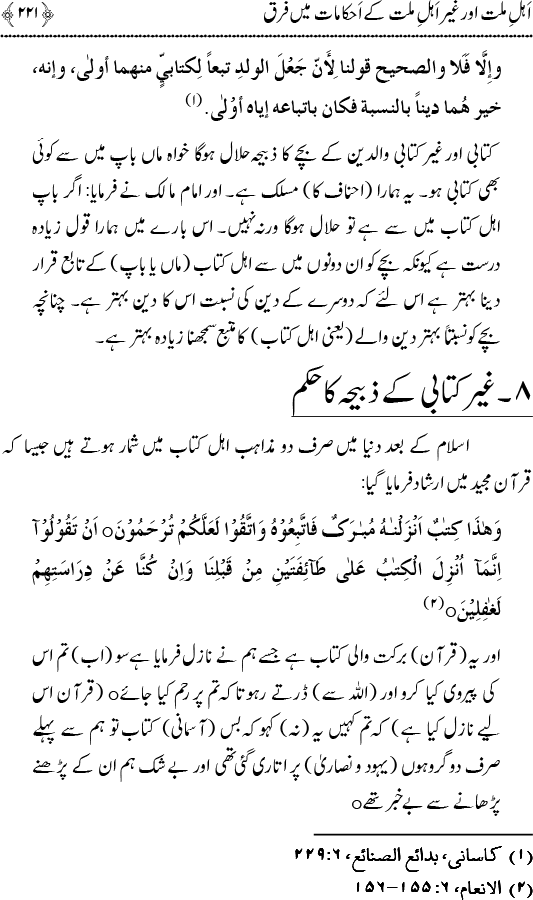 اَہلِ ملت اور غیر اَہلِ ملت کے اَحکامات میں فرق ﴿۲۲۱﴾
وإلَّا فَلَا والصحيح قولنا لِأَنّ جَعْلَ الولدِ تبعاً لِكتابيٍّ منهما أولٰى، وإنه،
خير هُما ديناً بالنسبة فكان باتباعه إياه أوْلٰى. (۱)
کتابی اور غیر کتابی والدین کے بچے کا ذبیحہ حلال ہوگا خواہ ماں باپ میں سے کوئی
بھی کتابی ہو۔ یہ ہمارا (احناف کا) مسلک ہے۔ اور امام مالک نے فرمایا: اگر باپ
اہل کتاب میں سے ہے تو حلال ہوگا ورنہ نہیں۔ اس بارے میں ہمارا قول زیادہ
درست ہے کیونکہ بچے کو ان دونوں میں سے اہل کتاب (ماں یا باپ) کے تابع قرار
دینا بہتر ہے اس لئے کہ دوسرے کے دین کی نسبت اس کا دین بہتر ہے۔ چنانچہ
بچے کو نسبتاً بہتر دین والے (یعنی اہل کتاب) کا متبع سمجھنا زیادہ بہتر ہے۔
۸۔ غیر کتابی کے ذبیحہ کا حکم
اسلام کے بعد دنیا میں صرف دو مذاہب اہل کتاب میں شمار ہوتے ہیں جیسا کہ
قرآن مجید میں ارشاد فرمایا گیا:
وَهٰذَا كِتٰبٌ اَنْزَلْنٰهُ مُبٰرَكٌ فَاتَّبِعُوْهُ وَاتَّقُوْا لَعَلَّكُمْ تُرْحَمُوْنَo اَنْ تَقُوْلُوْٓا
اِنَّمَآ اُنْزِلَ الْكِتٰبُ عَلٰى طَآئِفَتَيْنِ مِنْ قَبْلِنَا وَاِنْ كُنَّا عَنْ دِرَاسَتِهِمْ
لَغٰفِلِيْنَo (۲)
اور یہ (قرآن) برکت والی کتاب ہے جسے ہم نے نازل فرمایا ہے سو (اب) تم اس
کی پیروی کیا کرو اور (اللہ سے) ڈرتے رہو تاکہ تم پر رحم کیا جائےo (قرآن اس
لیے نازل کیا ہے) کہ تم کہیں یہ (نہ) کہو کہ بس (آسمانی) کتاب تو ہم سے پہلے
صرف دو گروہوں (یہود و نصاریٰ) پر اتاری گئی تھی اور بے شک ہم ان کے پڑھنے
پڑھانے سے بے خبر تھےo
(۱) کاسانی، بدائع الصنائع، ۶:۲۲۹
(۲) الانعام، ۶: ۱۵۵-۱۵۶